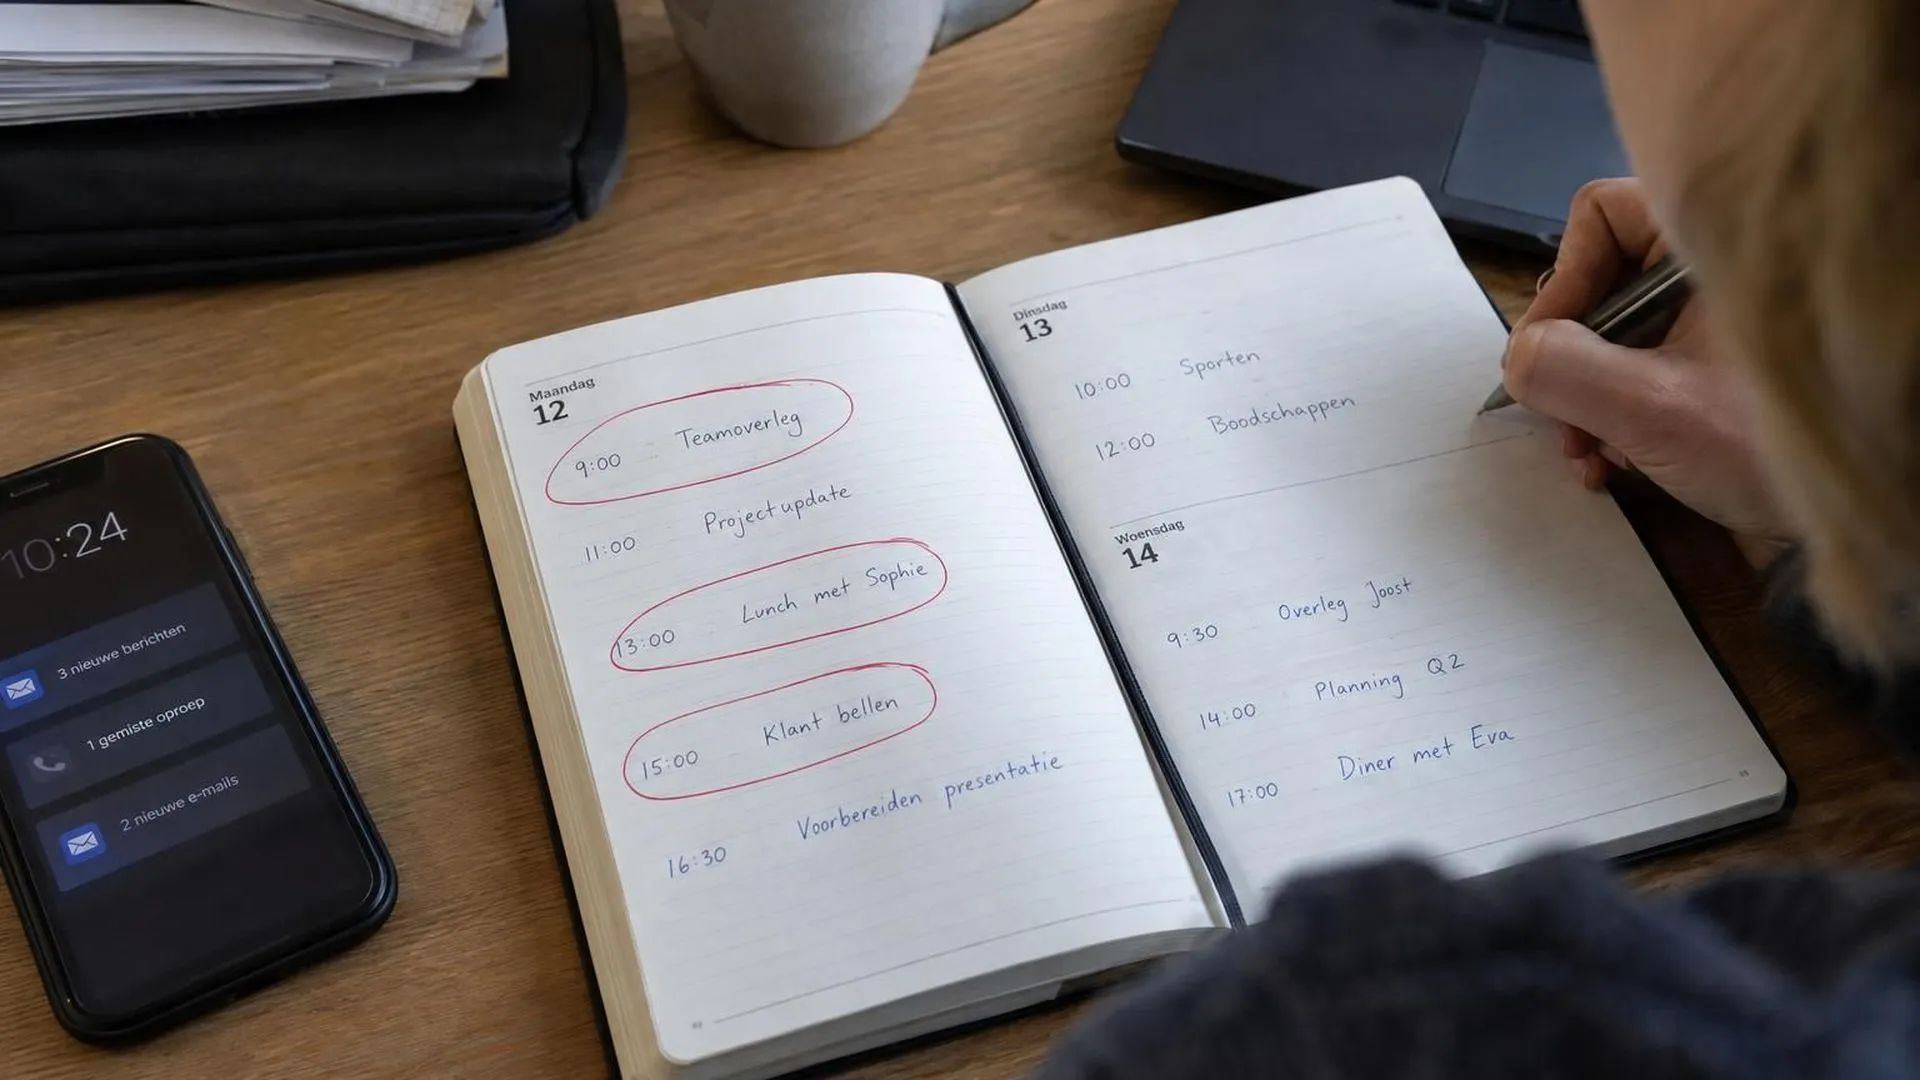 10:24
3 nieuwe berichten
1 gemiste oproep
2 nieuwe e-mails
Maandag
12
9:00 Teamoverleg
11:00 Projectupdate
13:00 Lunch met Sophie
15:00 Klant bellen
16:30 Voorbereiden presentatie
Dinsdag
13
10:00 Sporten
12:00 Boodschappen
Woensdag
14
9:30 Overleg Joost
14:00 Planning Q2
17:00 Diner met Eva